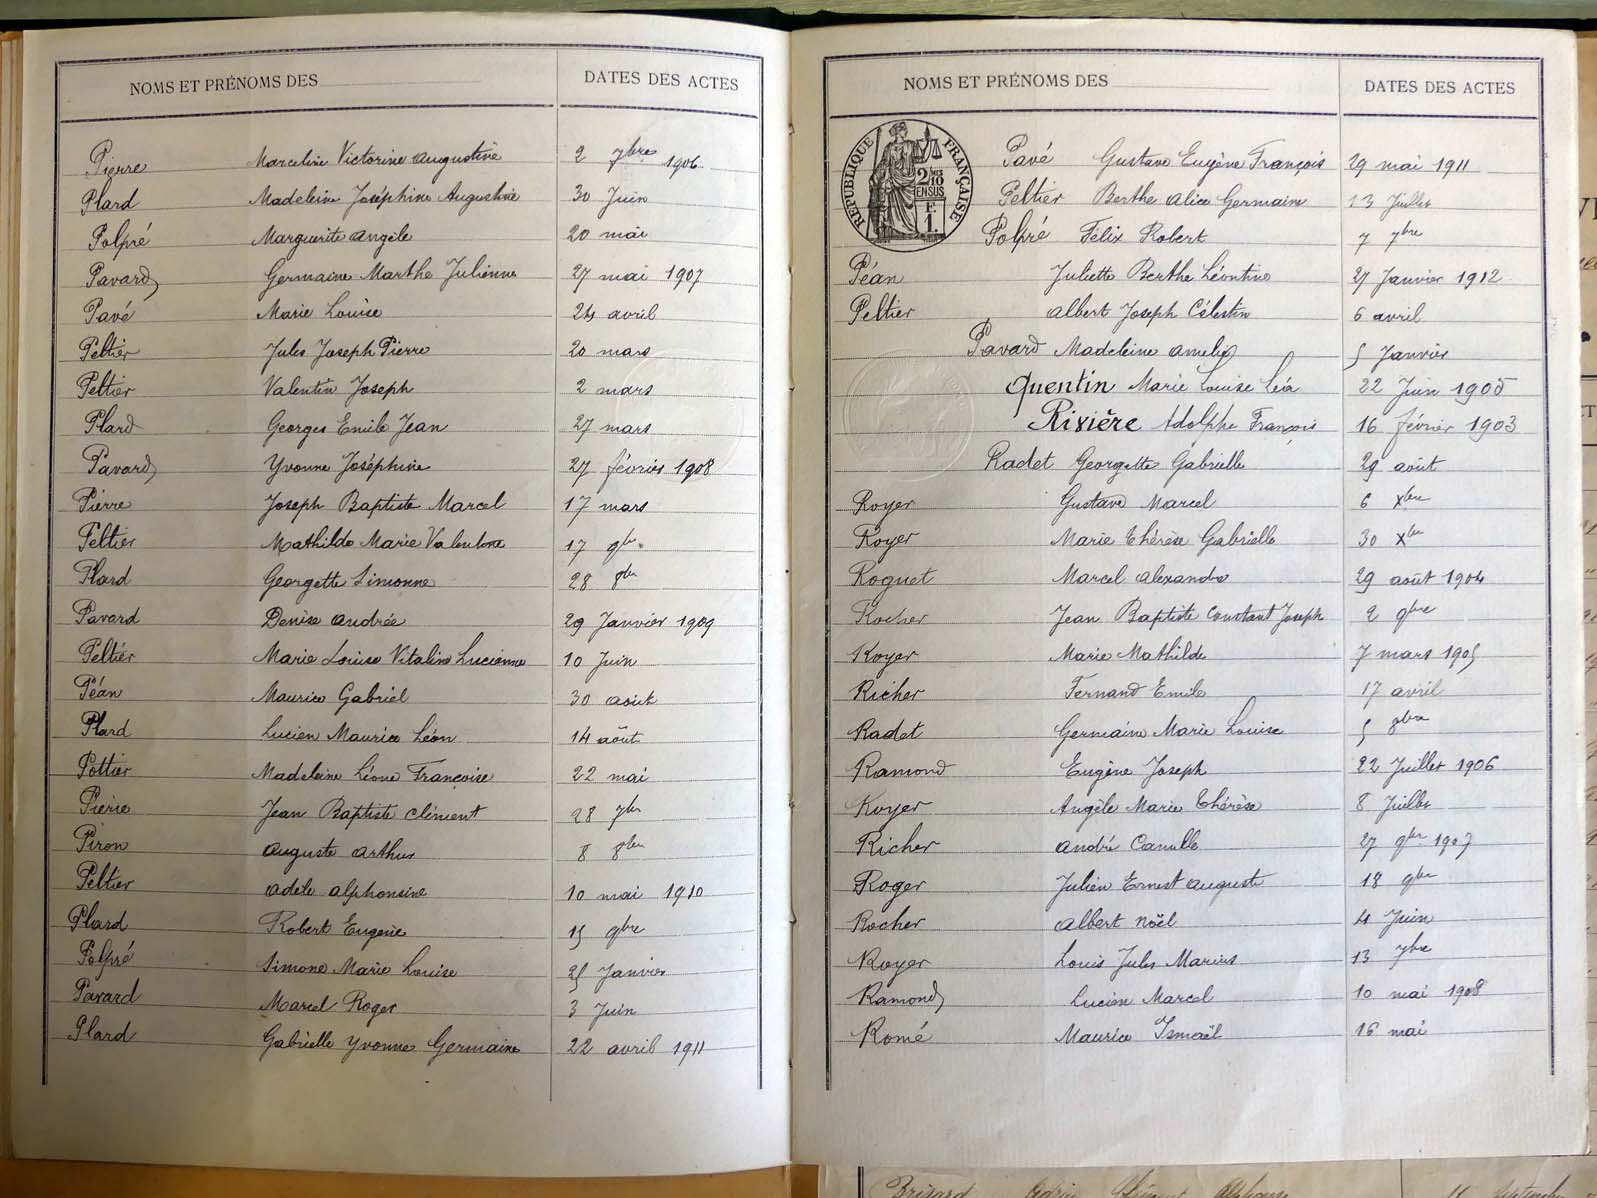 NOMS ET PRÉNOMS DES DATES DES ACTES
Pierre Marceline Victorine Augustine 2 7bre 1906
Plard Madeleine Joséphine Augustine 30 Juin
Polpré Marguerite Angèle 20 mai
Pavard Germaine Marthe Julienne 27 mai 1907
Pavé Marie Louise 24 avril
Peltier Jules Joseph Pierre 20 mars
Peltier Valentin Joseph 2 mars
Plard Georges Emile Jean 27 mars
Pavard Yvonne Joséphine 27 février 1908
Pierre Joseph Baptiste Marcel 17 mars
Peltier Mathilde Marie Valentine 17 9bre
Plard Georgette Simonne 28 8bre
Pavard Denise Andrée 29 Janvier 1909
Peltier Marie Louise Vitaline Lucienne 10 Juin
Péan Maurice Gabriel 30 août
Plard Lucien Maurice Léon 14 août
Pottier Madeleine Léone Françoise 22 mai
Pierre Jean Baptiste Clément 28 7bre
Piron Auguste Arthur 8 8bre
Peltier Adèle Alphonsine 10 mai 1910
Plard Robert Eugène 15 9bre
Polpré Simone Marie Louise 25 Janvier
Pavard Marcel Roger 3 Juin
Plard Gabrielle Yvonne Germaine 22 avril 1911
NOMS ET PRÉNOMS DES DATES DES ACTES
RÉPUBLIQUE FRANÇAISE
2/10
EN SUS
F.
1.
Pavé Gustave Eugène François 29 mai 1911
Peltier Berthe Alice Germaine 13 Juillet
Polpré Félix Robert 7 7bre
Péan Juliette Berthe Léontine 27 Janvier 1912
Peltier Albert Joseph Célestin 6 avril
Pavard Madeleine Amélie 5 Janvier
Quentin Marie Louise Léa 22 Juin 1905
Rivière Adolphe François 16 février 1903
Radet Georgette Gabrielle 29 août
Royer Gustave Marcel 6 Xbre
Royer Marie Thérèse Gabrielle 30 Xbre
Roguet Marcel Alexandre 29 août 1904
Rocher Jean Baptiste Constant Joseph 2 9bre
Royer Marie Mathilde 7 mars 1905
Richer Fernand Emile 17 avril
Radet Germaine Marie Louise 5 9bre
Ramond Eugène Joseph 22 Juillet 1906
Royer Angèle Marie Thérèse 8 Juillet
Richer André Camille 27 9bre 1907
Roger Julien Ernest Auguste 18 9bre
Rocher Albert Noël 4 Juin
Royer Louis Jules Marius 13 7bre
Ramond Lucien Marcel 10 mai 1908
Romé Maurice Ismaël 16 mai
Brisard